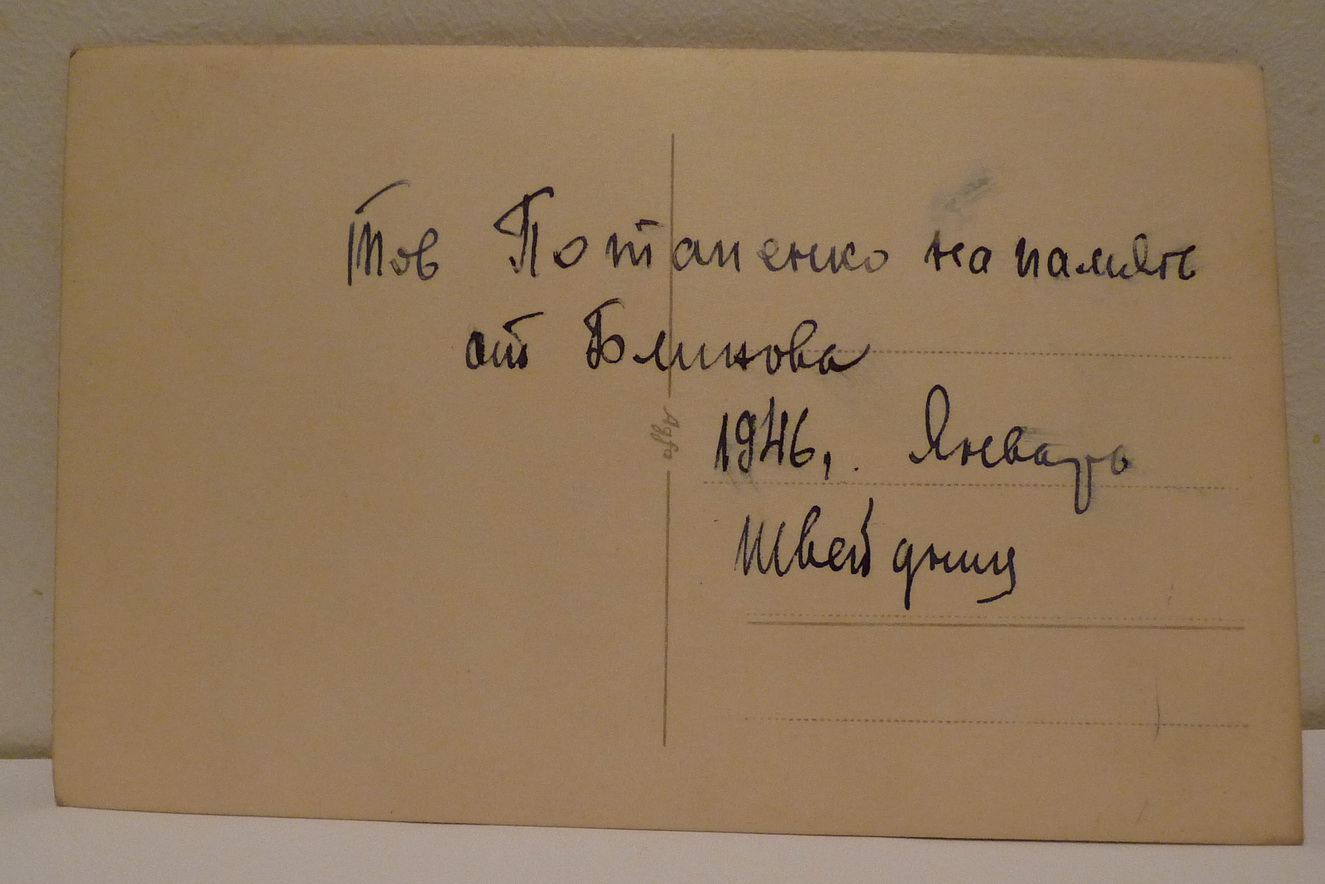 Тов Потапенко на память
от Блинова
Agfa
1946,. Январь
Швейдниц